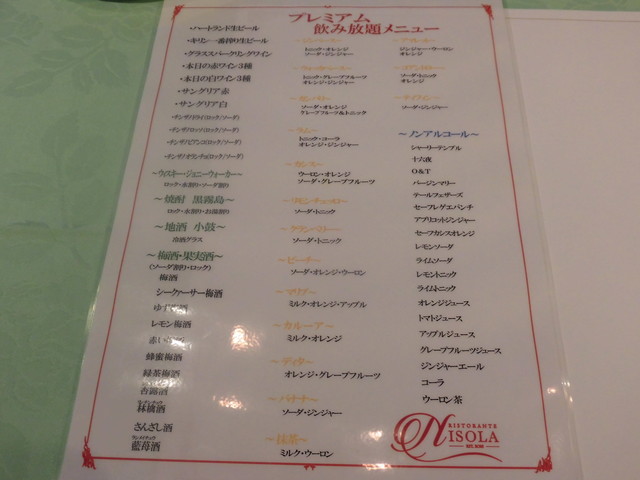 プレミアム
飲み放題メニュー
・ハートランド生ビール
・キリン一番搾り生ビール
・グラススパークリングワイン
・本日の赤ワイン3種
・本日の白ワイン3種
・サングリア赤
・サングリア白
～ウイスキー・ジョニーウォーカー～
ロック・水割り・ソーダ割り
～焼酎 黒霧島～
ロック・水割り・お湯割り
～地酒 小鼓～
冷酒グラス
～梅酒・果実酒～
(ソーダ割り・ロック)
梅酒
シークァーサー梅酒
ゆず梅酒
レモン梅酒
蜂蜜梅酒
緑茶梅酒
杏露酒
林檎酒
さんざし酒
藍苺酒
トニック・オレンジ
ソーダ・ジンジャー
トニック・グレープフルーツ
オレンジ・ジンジャー
ソーダ・オレンジ
グレープフルーツ&トニック
～ラム～
トニック・コーラ
オレンジ・ジンジャー
～カシス～
ウーロン・オレンジ
ソーダ・グレープフルーツ
～リモンチェッロ～
ソーダ・トニック
～クランベリー～
ソーダ・トニック
～ピーチ～
ソーダ・オレンジ・ウーロン
～マリブ～
ミルク・オレンジ・アップル
～カルーア～
ミルク・オレンジ
～ディタ～
オレンジ・グレープフルーツ
～バナナ～
ソーダ・ジンジャー
～抹茶～
ミルク・ウーロン
ジンジャー・ウーロン
オレンジ
ソーダ・トニック
オレンジ
ソーダ・ジンジャー
～ノンアルコール～
シャーリーテンプル
十六夜
O&T
バージンマリー
テールフェザーズ
セーフレゲエパンチ
アプリコットジンジャー
セーフカシスオレンジ
レモンソーダ
ライムソーダ
レモントニック
ライムトニック
オレンジジュース
トマトジュース
アップルジュース
グレープフルーツジュース
ジンジャーエール
コーラ
ウーロン茶
RISTORANTE
NISOLA